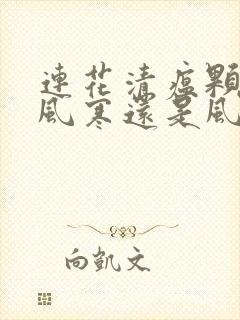 連花清瘟顆
風寒還是風
向凱文